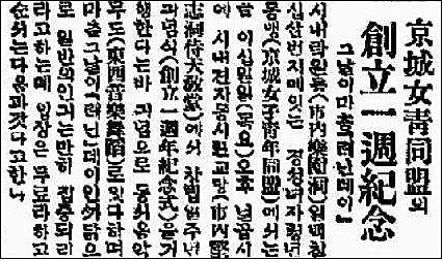 京城女靑同盟의
創立一週紀念
그날이마츰러닌데이
시내락원동(市內樂園洞)일백칠
십삼번디에잇는 경성녀자청년
동맹(京城女子靑年同盟)에서는
금이십일일(목요)오후닐곱시
에 시내견지동시텬교당(市內堅
志洞侍天敎堂)에서 창립일주년
긔념식(創立一週年紀念式)을거
행한다는바 긔념으로 동서음악
무도(東西音樂舞蹈)도잇다하며
마츰그날이 러닌데이인 닭으
로 일반의인긔는만히 집중되리
라고하는데 입장은무료라하고
순서는다음과갓다고한다